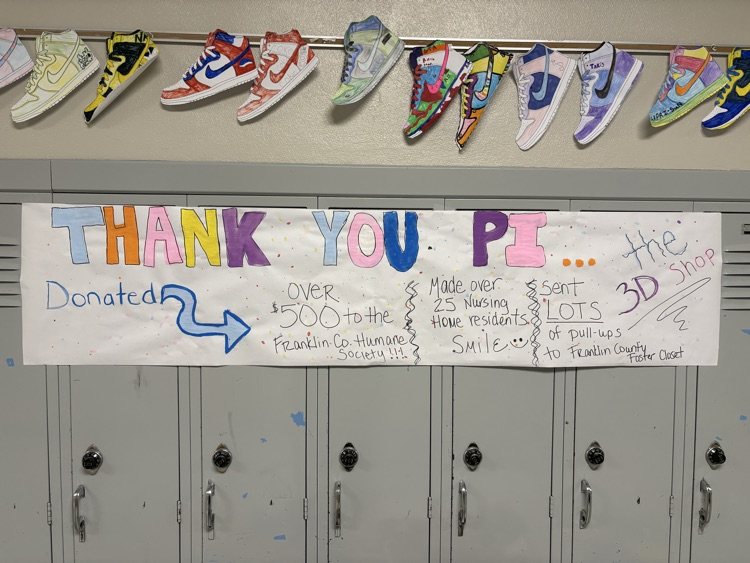 THANK YOU PI...
the
3D Shop
Donated
OVER
$500 to the
Franklin-Co. Humane
Society!!!
Made over
25 Nursing
Home residents
Smile
Sent
LOTS
of pull-ups
to Franklin County
Foster Closet